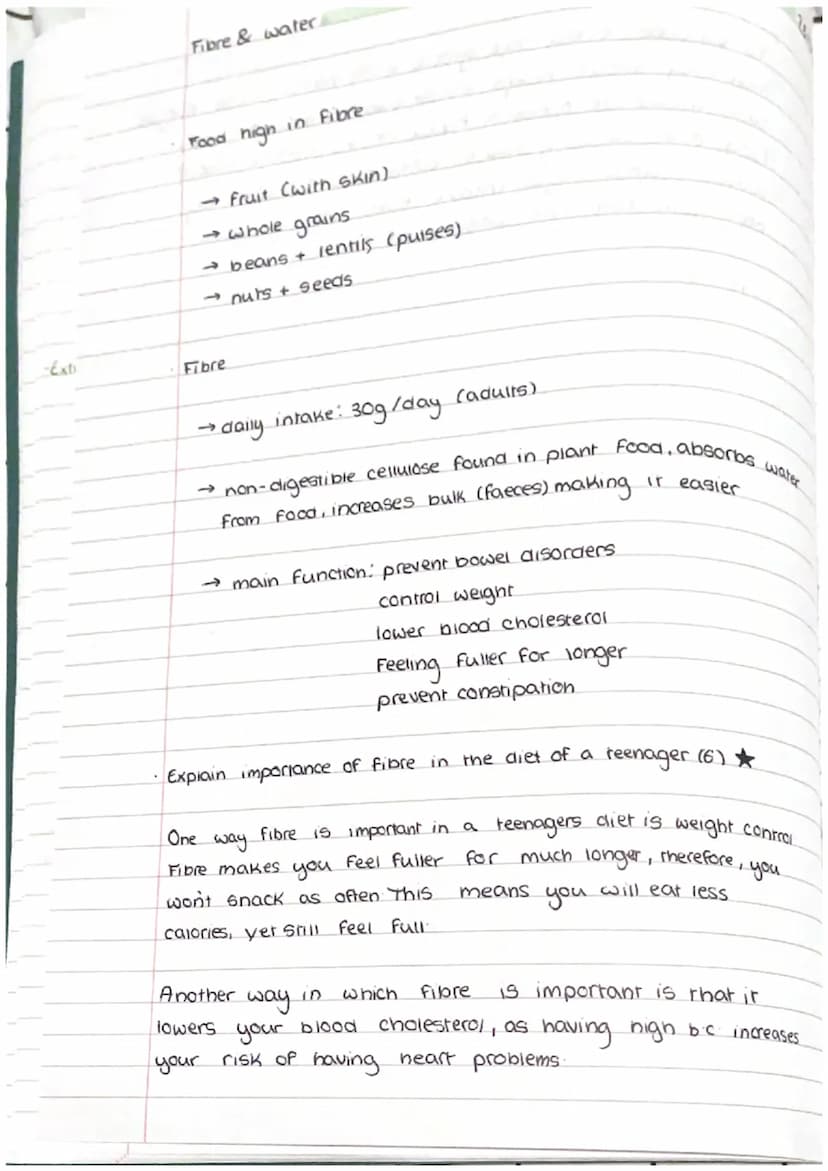 Fibre & water
· Food high in fibre
→ fruit (with skin)
→ whole grains
→ beans + lentils (pulses)
→ nuts + seeds
· Fibre
→ daily intake: 30g/day (adults)
→ non-digestible cellulose found in plant food, absorbs water
from food, increases bulk (faeces) making it easier
→ main function: prevent bowel disorders
control weight
lower blood cholesterol
feeling fuller for longer
prevent constipation
· Explain importance of fibre in the diet of a teenager (6) ★
One way fibre is important in a teenagers diet is weight control
Fibre makes you feel fuller for much longer, therefore, you
won't snack as often This means you will eat less
calories, yet still feel full.
Another way in which fibre is important is that it
lowers your blood cholesterol, as having high b.c increases
your risk of having heart problems.